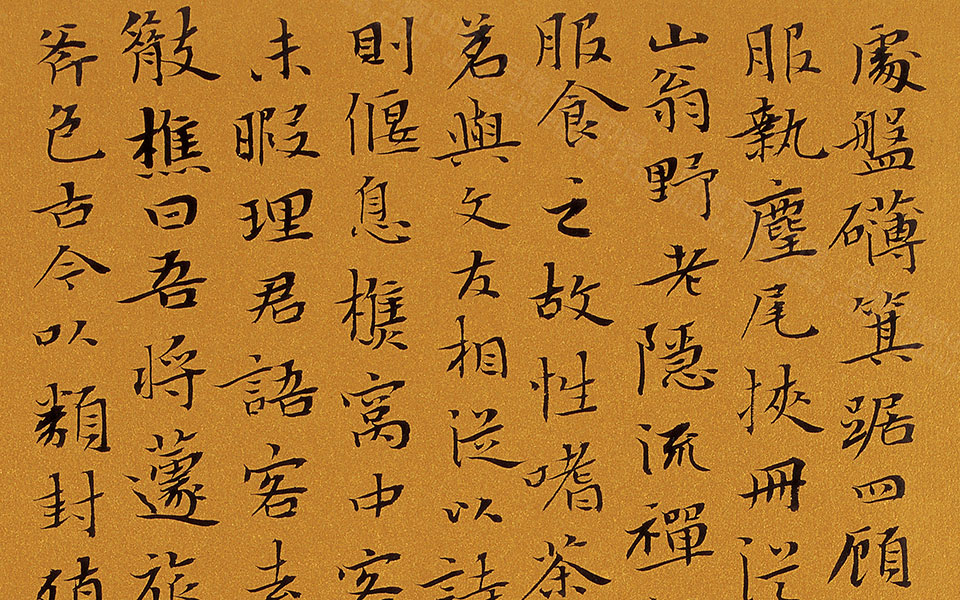 處盤礴箕踞四顧
服執麈尾挾冊從
山翁野老隱流禪
服食之故性嗜茶
茗與文友相從以詩
則偃息樵窩中客
未暇理君語客去
樵曰吾將蘧旅
斧色古今以類封